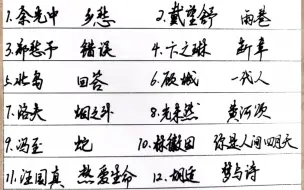 1.余光中 乡愁 2.戴望舒 雨巷
3.郑愁予 错误 4.卞之琳 断章
5.北岛 回答 6.顾城 一代人
7.洛夫 烟之外 8.光未然 黄河颂
9.冯至 蛇 10.林徽因 你是人间四月天
11.汪国真 热爱生命 12.胡适 梦与诗